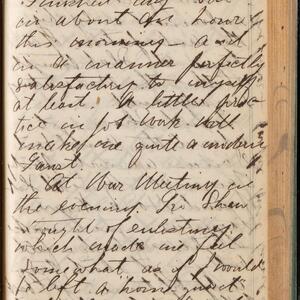 Finished my
in about an hour
this morning - and
in a manner perfectly
satisfactory to myself
at least. A little prac-
tice in job work will
make me quite a modern
Faust.
At War Meeting in
the evening
of enlisting
which made me feel
somewhat as if I would
left a home guard